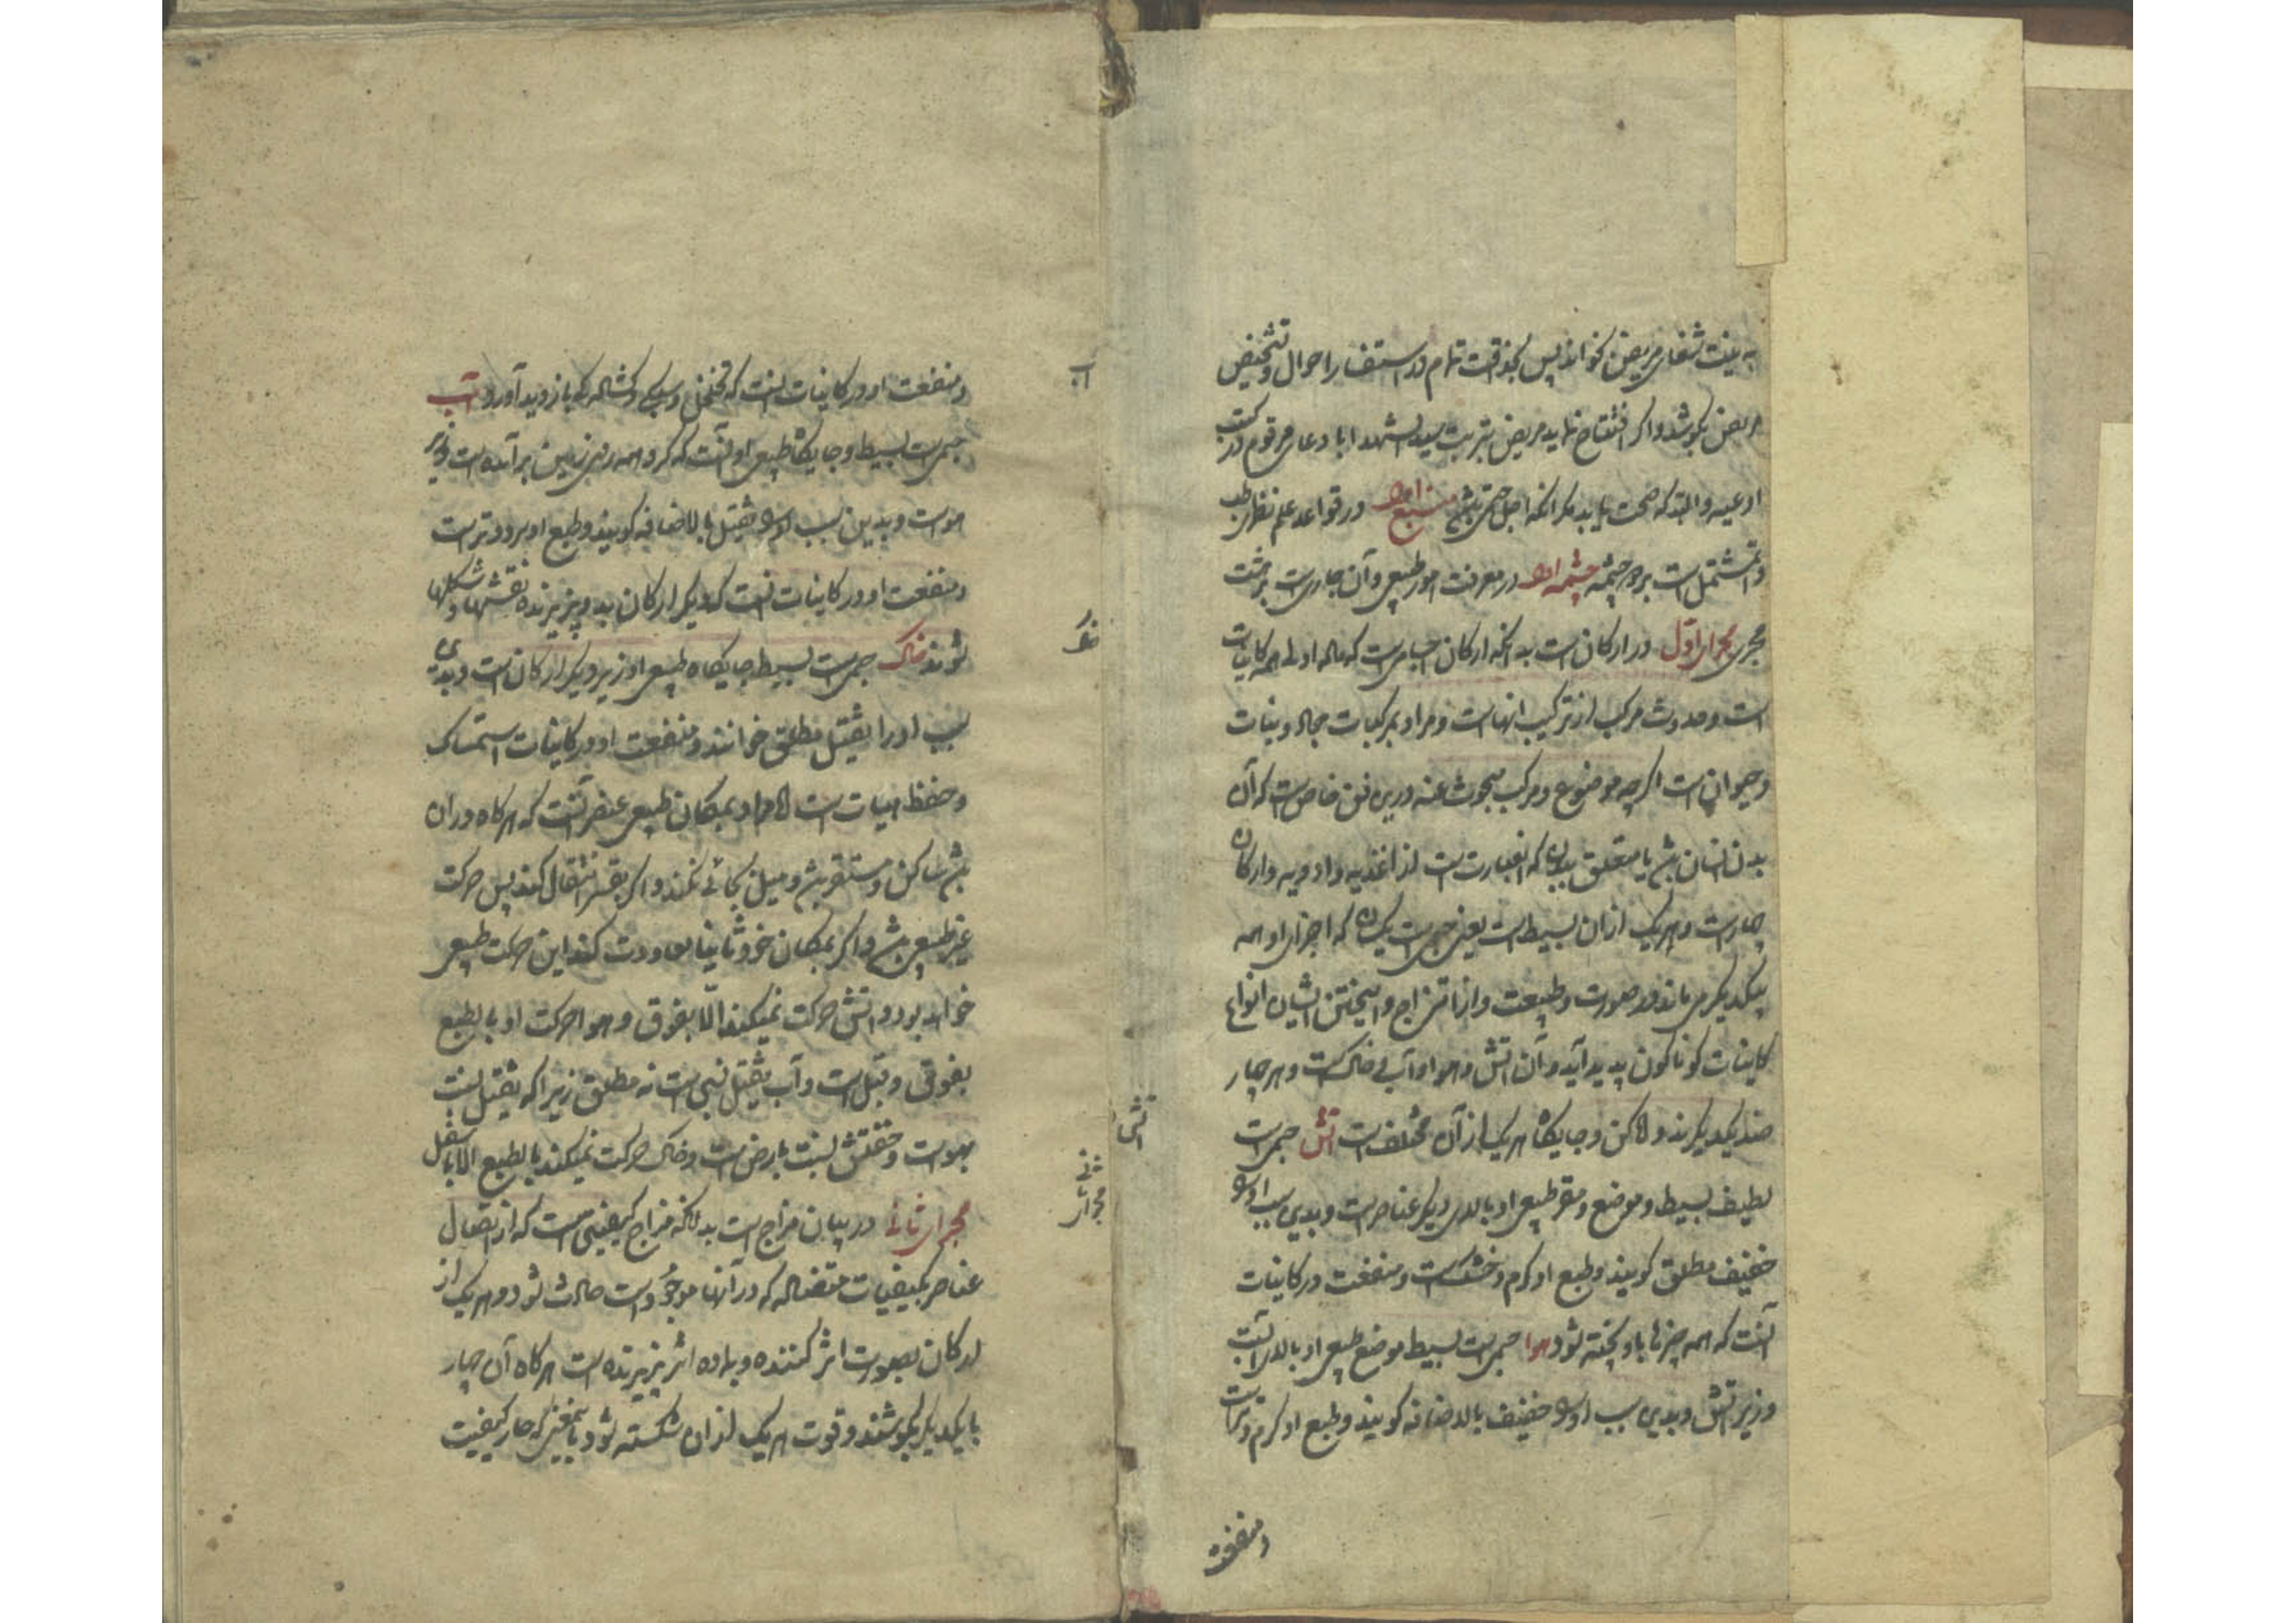 به نیت شفای مریض بخواند پس بحذاقت تمام در استفسار احوال و تشخیص
مرض بکوشد و اگر افتتاح نماید مریض بتربت سید الشهدا با دعای مرقوم در کتب
ادعیه و البته که صحت یابد مگر آنکه اجل حتمی باشد منبع اول در قواعد علم نظری طب
و آن مشتمل است بر دو چشمه چشمه اول در معرفت امور طبیعی و آن جاریست بر هشت
مجری مجرای اول در ارکان است بدانکه ارکان اجسامی است که ماده اولی همه کاینات
است و حدوث مرکب از ترکیب آنهاست و مراد بمرکبات جماد و نبات
و حیوان است اگرچه موضوع و مرکب مبحوث عنه درین فن خاص است که آن
بدن انسان باشد یا متعلق ببدن که عبارت است از اغذیه و ادویه و ارکان
چهار است و هر یک از آن بسیط است یعنی جسمی است یکسان که اجزای او همه
بیکدیگر می ماند در صورت و طبیعت و از امتزاج و آمیختن ایشان انواع
کاینات گوناگون پدید آید و آن آتش و هوا و آب و خاکست و هر چهار
ضد یکدیگرند و لاکن و جایگاه هر یک از آن مختلف است آتش جسمی است
لطیف بسیط و موضع و مقر طبیعی او بالای دیگر عناصر است و بدین سبب او را
خفیف مطلق گویند و طبع او گرم و خشکست و منفعت در کاینات
آنست که همه چیزها باو پخته شود هوا جسمی است بسیط موضع طبیعی او بالای آبست
و زیر آتش و بدین سبب او را خفیف بالاضافه گویند و طبع او گرم و تر است
و منفعت
و منفعت او در کاینات آنست که تخلخل و سبکی و گشادگی باز دید آورد آب
جسمی است بسیط و جایگاه طبیعی او آنست که گرد همه روی زمین برآمده است و زیر
هواست و بدین سبب او را ثقیل بالاضافه گویند و طبع او سرد و تر است
و منفعت او در کاینات آنست که دیگر ارکان بدو پذیرنده نقشها و شکلها
شوند خاک جسمی است بسیط جایگاه طبیعی او زیر دیگر ارکان است و بدین
سبب او را ثقیل مطلق خوانند و منفعت او در کاینات استمساک
و حفظ هیات است و مراد بمکان طبیعی عنصر آنست که هرگاه در آن
باشد ساکن و مستقر باشد و میل بجائی نکند و اگر بقسر انتقال کند پس حرکت
غیر طبیعی باشد و اگر بمکان خود ثانیا معاودت کند این حرکت طبیعی
خواهد بود و آتش حرکت نمیکند الا بفوق و هوا حرکت او بالطبع
بفوق و ثقل است و آب ثقیل نسبی است نه مطلق زیرا که ثقیل بنسبت
بهواست و خفتش بنسبت بارض است و خاک حرکت نمیکند بالطبع الا باسفل
مجرای ثانی در بیان مزاج است بدانکه مزاج کیفیتی است که از انفعال
عناصر بکیفیات متضاده که در آنها موجود است حادث شود و هر یک از
ارکان بصورت اثر کننده و بماده اثر پذیرنده است هرگاه آن چهار
با یکدیگر بکوشند و قوت هر یک از آن شکسته شود یعنی که چهار کیفیت
آب
خاک
آتش
مجرای ثانی